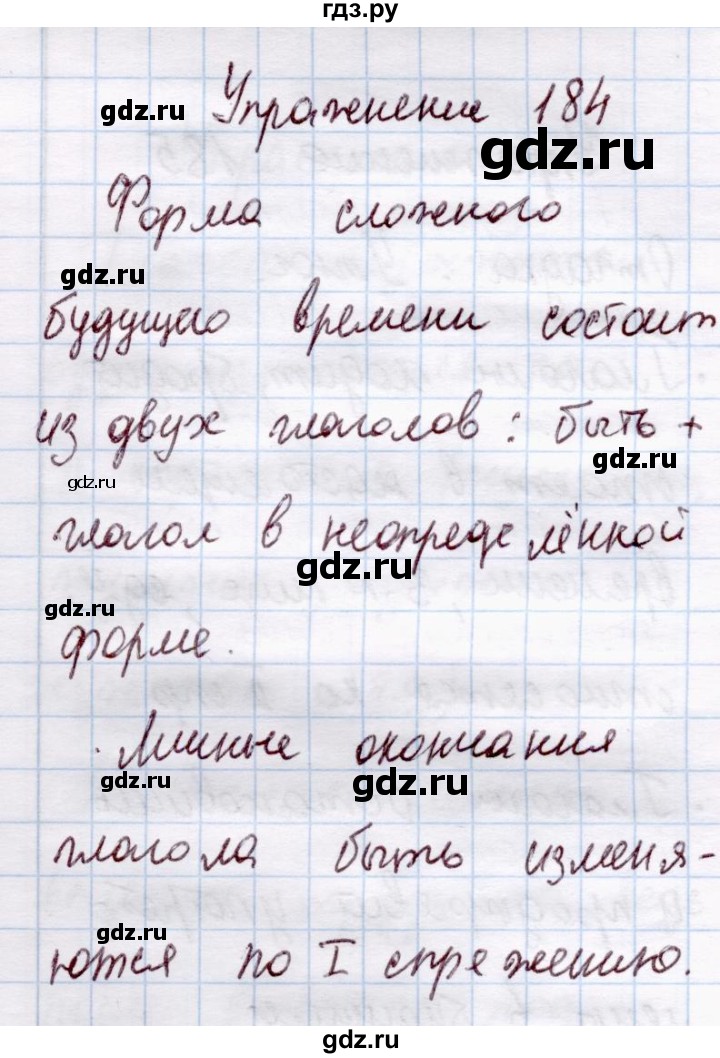 гдз.ру
Упражнение 184
gdz.ru
gdz.ru
Форма сложного
gdz.ru
будущего времени состоит
из двух глаголов: быть +
gdz.ru
gdz.ru
глагол в неопределённой
gdz.ru
gdz.ru
форме.
Личные окончания
gdz.ru
gdz.ru
глагола быть изменя-
gdz.ru
ются по I спряжению.
gdz.ru